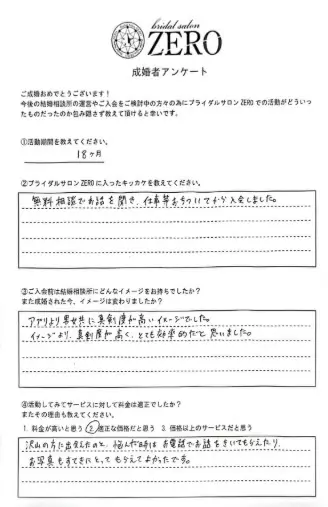 bridal salon
ZERO
成婚者アンケート
ご成婚おめでとうございます！
今後の結婚相談所の運営やご入会をご検討中の方々の為にブライダルサロン ZERO での活動がどういっ
たものだったのか包み隠さず教えて頂けると幸いです。
①活動期間を教えてください。
18ヶ月
②ブライダルサロン ZERO に入ったキッカケを教えてください。
無料相談でお話を聞き、仕事等おちついてから入会しました。
③ご入会前は結婚相談所にどんなイメージをお持ちでしたか？
また成婚された今、イメージは変わりましたか？
アプリより男女共に真剣度が高いイメージでした。
イメージより、真剣度が高く、とても効率的だと思いました。
④活動してみてサービスに対して料金は適正でしたか？
またその理由も教えてください。
1. 料金が高いと思う 2. 適正な価格だと思う 3. 価格以上のサービスだと思う
沢山の方に出会えたのと、悩んだ時は お電話でお話をきいてもらえたり、
お写真もすてきにとってもらえてよかったです。